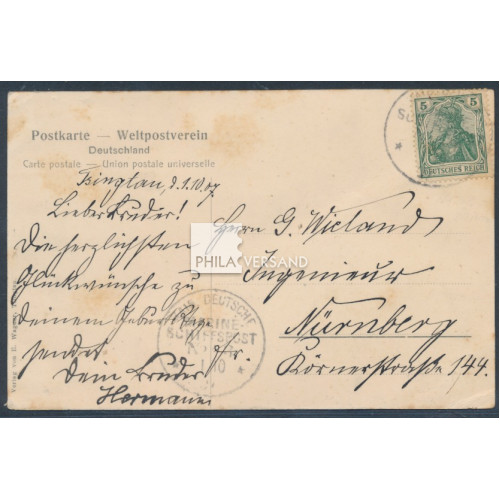 Postkarte — Weltpostverein
Deutschland
Carte postale — Union postale universelle
5 5
DEUTSCHES REICH
Tsingtau, d. 1.10.07
Lieber Bruder!
Die herzlichsten
Glückwünsche zu
Deinem Geburtstage
sendet Dir
Dein Bruder
Hermann
Herrn G. Wieland
Ingenieur
Nürnberg
Körnerstraße 144.
PHILA VERSAND
DEUTSCHE
MARINE-
SCHIFFSPOST